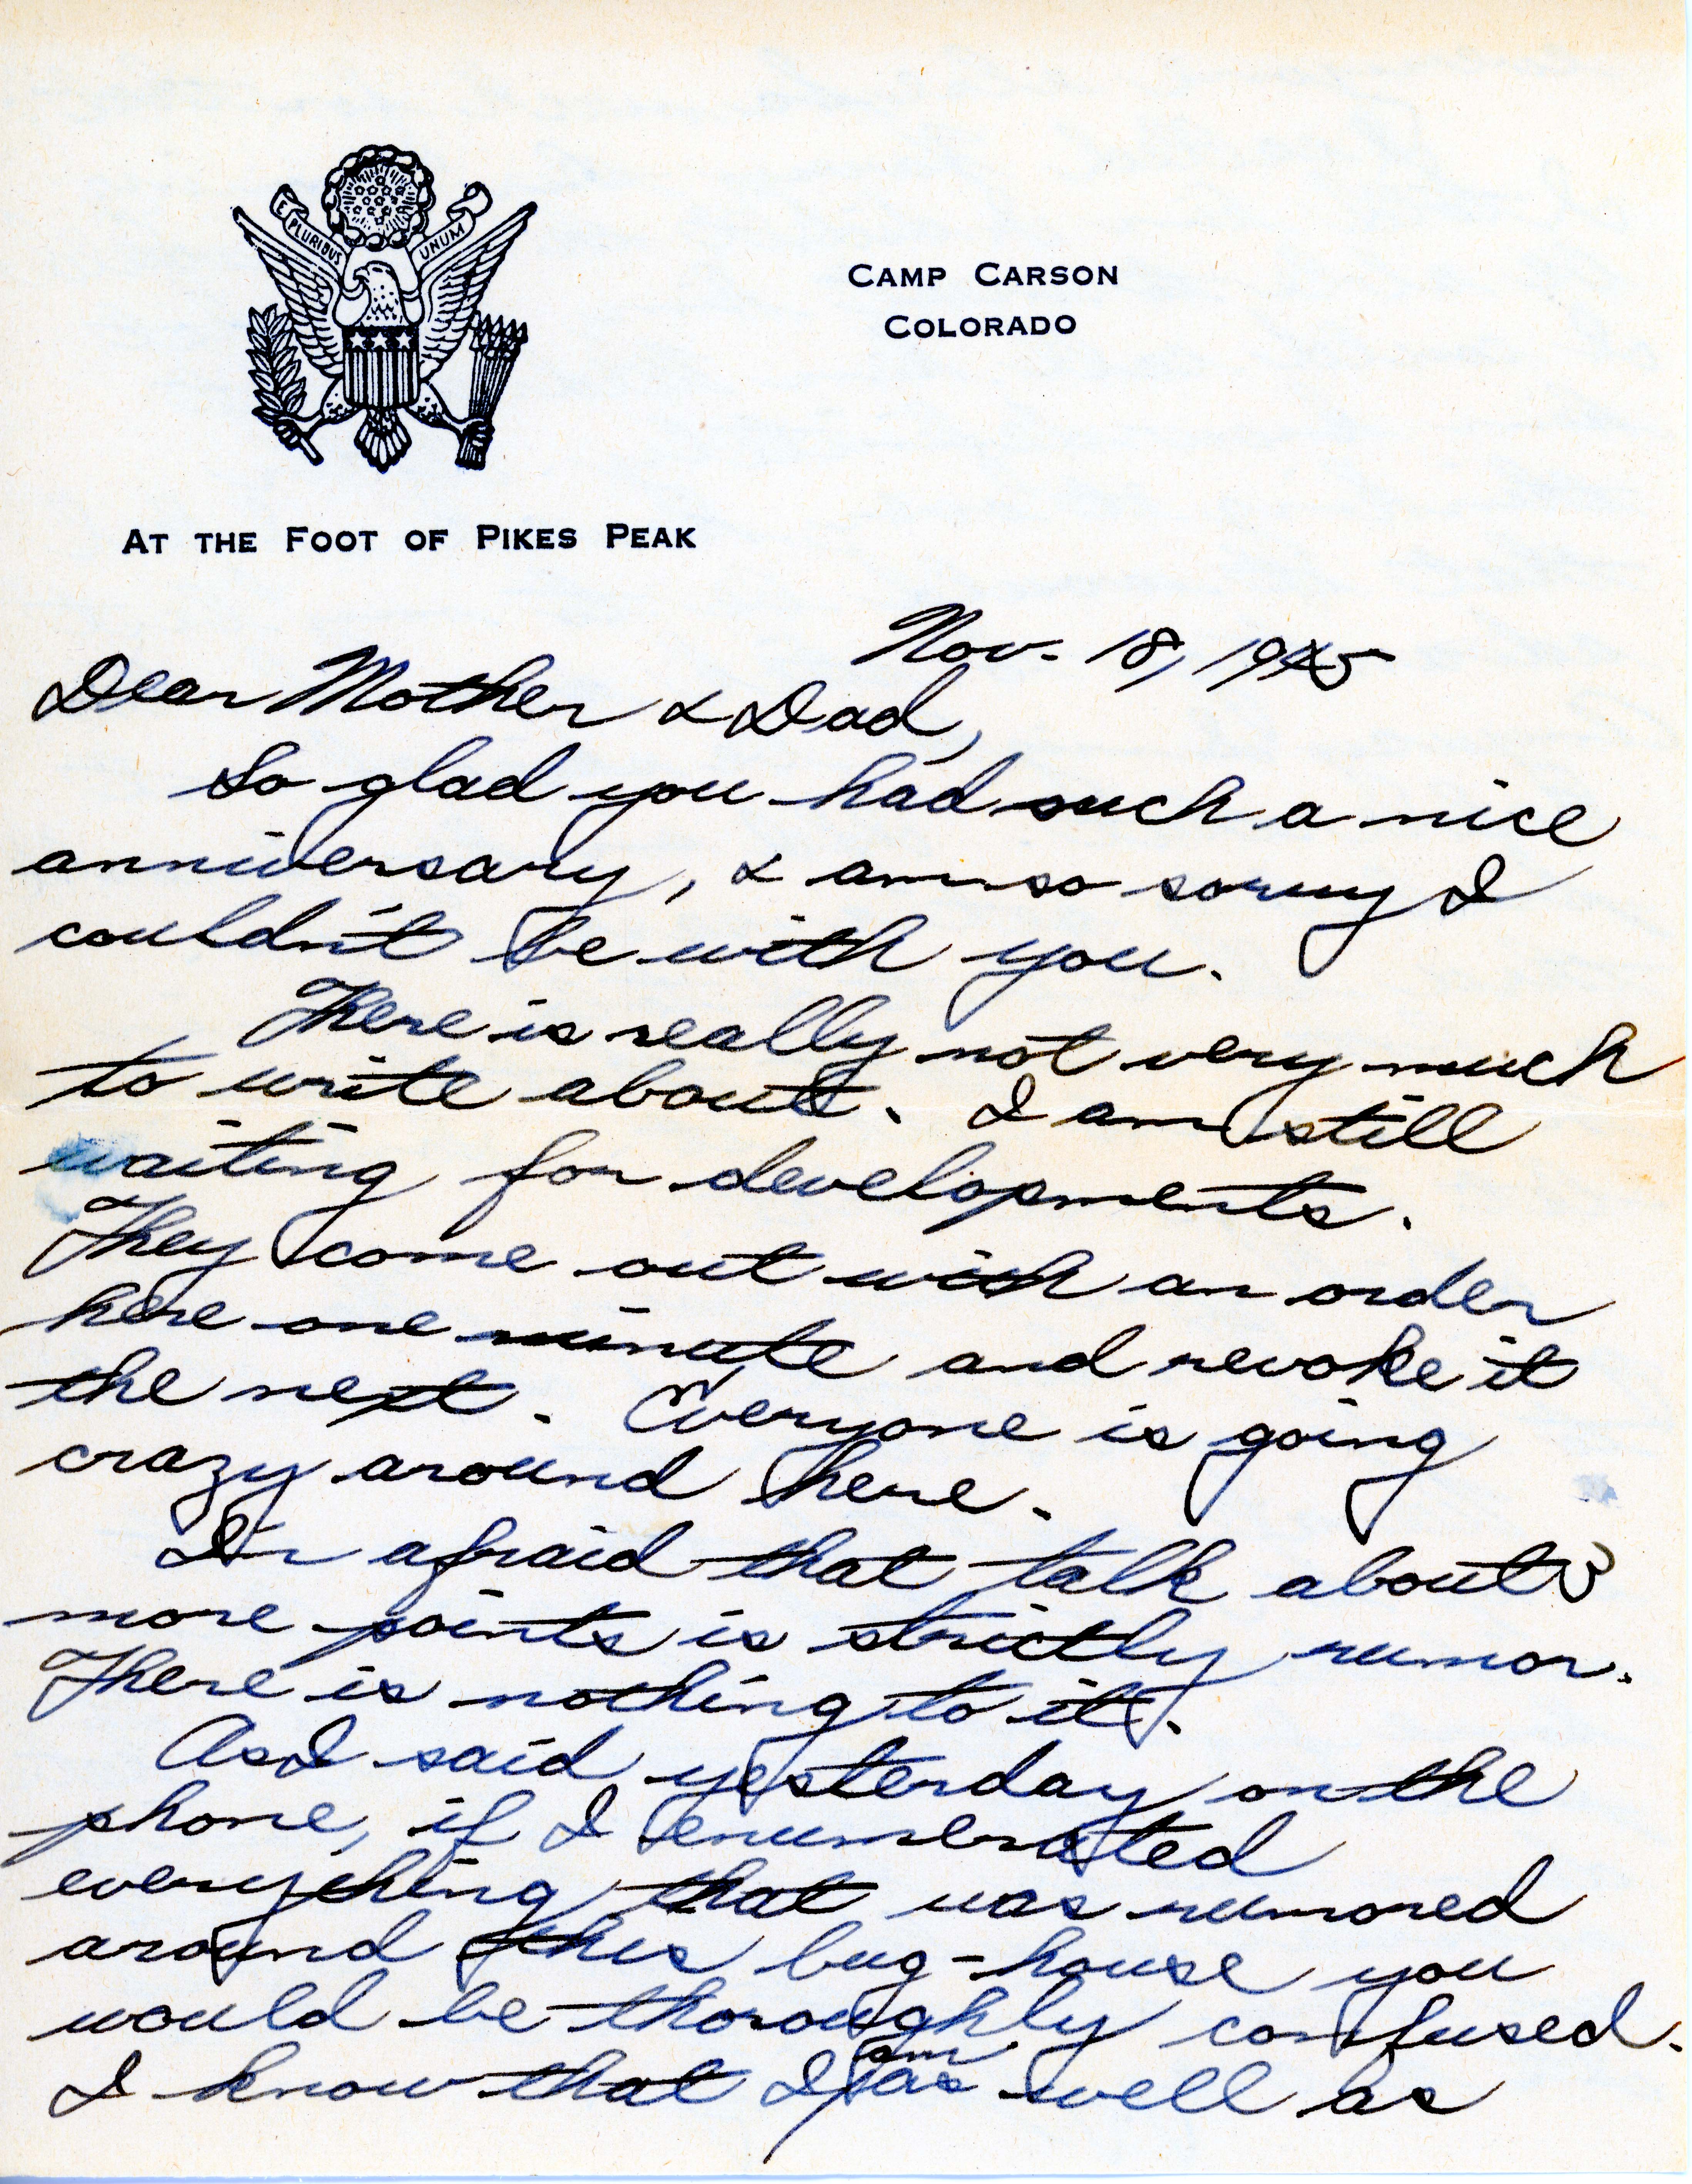 E PLURIBUS UNUM
CAMP CARSON
COLORADO
AT THE FOOT OF PIKES PEAK
Nov. 18, 1945
Dear Mother & Dad,
So glad you had such a nice
anniversary, & am so sorry I
couldn't be with you.
There is really not very much
to write about. I am still
waiting for developments.
They come out with an order
here one minute and revoke it
the next. Everyone is going
crazy around here.
I'm afraid that talk about
more points is strictly rumor.
There is nothing to it.
As I said yesterday on the
phone, if I enumerated
everything that was rumored
around this bug-house you
would be thoroughly confused.
I know that I am as well as